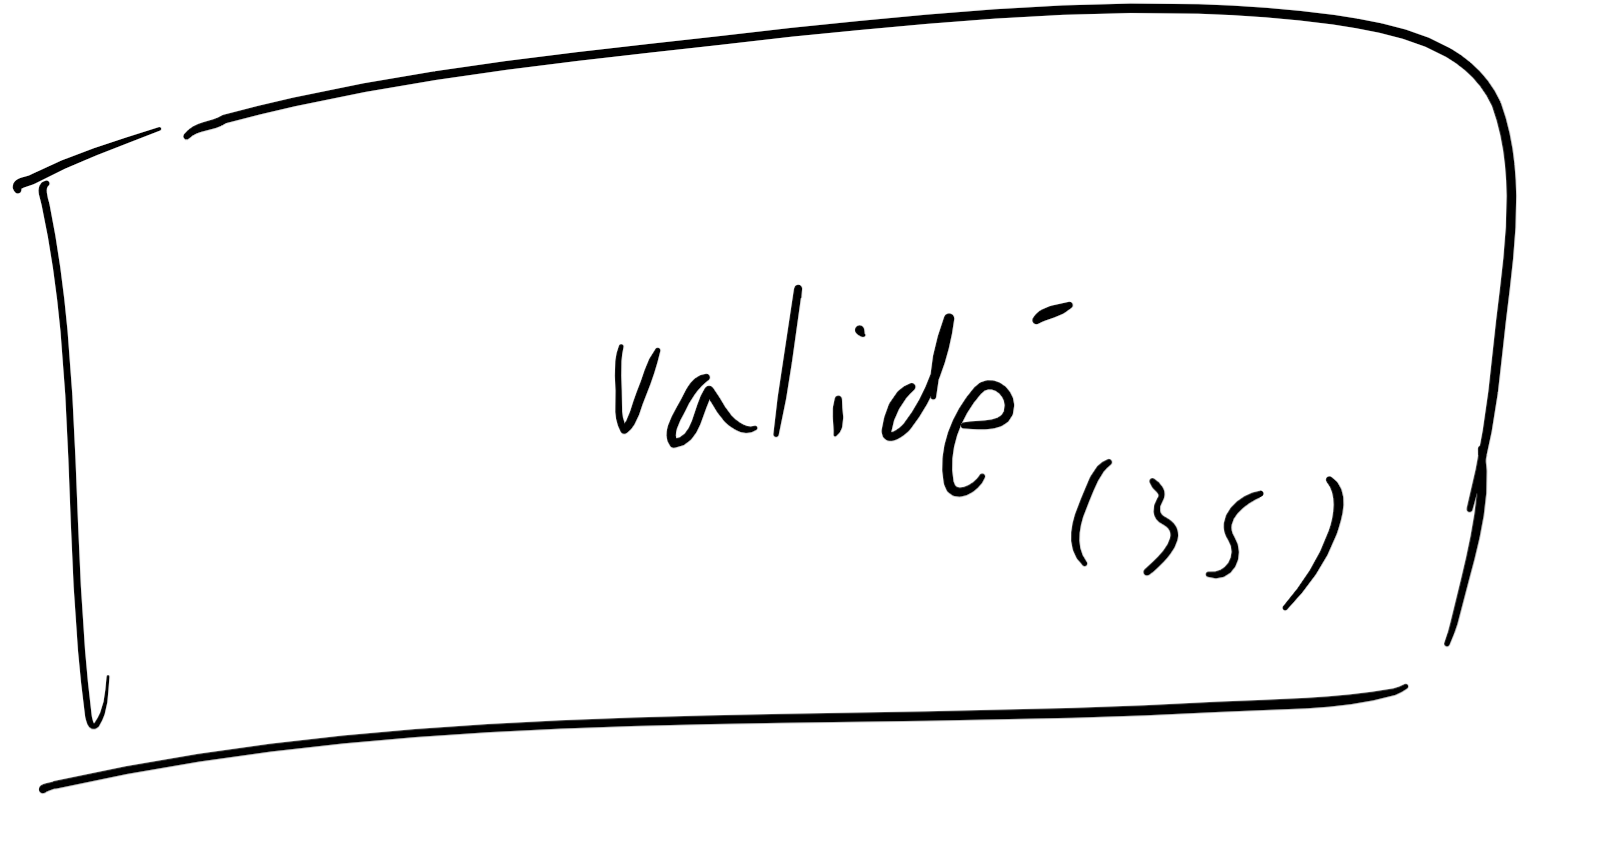 validé
(35)